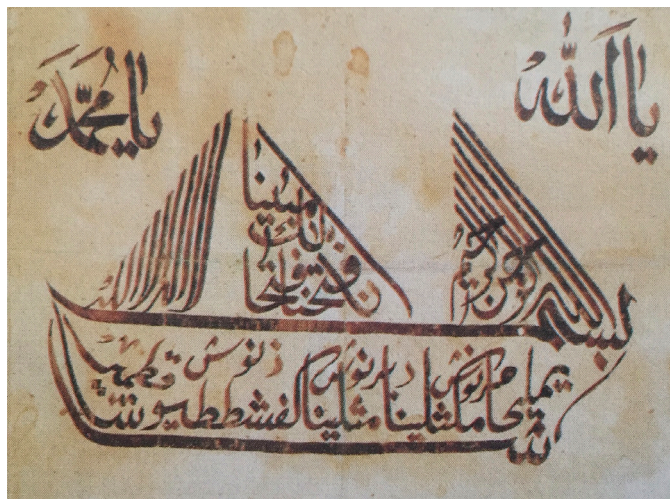 يا الله
يا محمد
بسم الله الرحمن الرحيم
انا فتحنا لك فتحا مبينا
يمليخا مكثلينا مثلينا مرنوش دبرنوش شاذنوش كفشططيوش قطمير